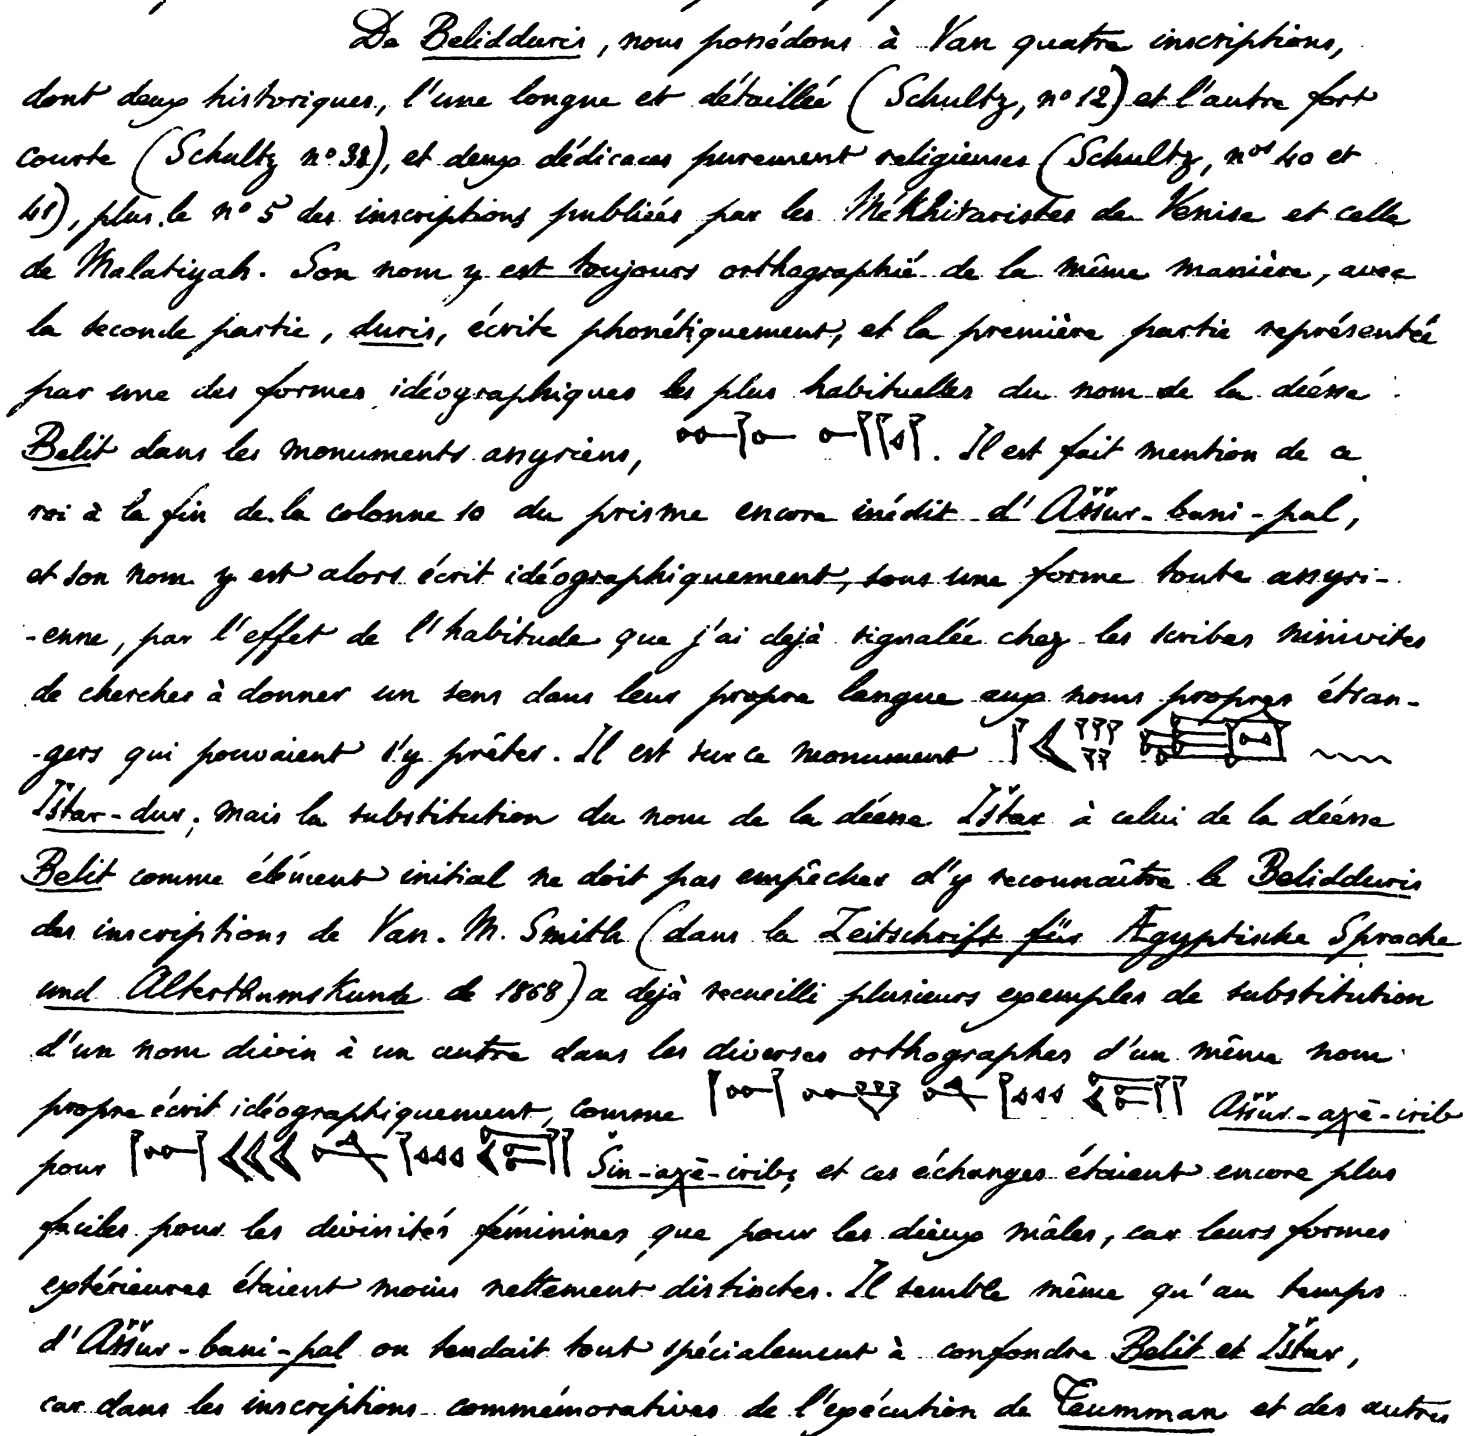 De Belidduris, nous possédons à Van quatre inscriptions,
dont deux historiques, l'une longue et détaillée (Schultz, nº 12) et l'autre fort
courte (Schultz nº 38), et deux dédicaces purement religieuses (Schultz, nos 40 et
41), plus le nº 5 des inscriptions publiées par les Mékhitaristes de Venise et celle
de Malatiyah. Son nom y est toujours orthographié de la même manière, avec
la seconde partie, duris, écrite phonétiquement, et la première partie représentée
par une des formes idéographiques les plus habituelles du nom de la déesse
Belit dans les monuments assyriens, . Il est fait mention de ce
roi à la fin de la colonne 10 du prisme encore inédit d'Aššur-bani-pal,
et son nom y est alors écrit idéographiquement, sous une forme toute assyri-
-enne, par l'effet de l'habitude que j'ai dejà signalée chez les scribes ninivites
de chercher à donner un sens dans leur propre langue aux noms propres étran-
-gers qui pouvaient s'y prêter. Il est sur ce monument
Ištar-dur; mais la substitution du nom de la déesse Ištar à celui de la déesse
Belit comme élément initial ne doit pas empêcher d'y reconnaître le Belidduris
des inscriptions de Van. M. Smith (dans la Zeitschrift für Ægyptische Sprache
und Alterthumskunde de 1868) a dejà recueilli plusieurs exemples de substitution
d'un nom divin à un autre dans les diverses orthographes d'un même nom
propre écrit idéographiquement, comme Aššur-aχē-irib
pour Šin-aχē-irib; et ces échanges étaient encore plus
faciles pour les divinités féminines que pour les dieux mâles, car leurs formes
extérieures étaient moins nettement distinctes. Il semble même qu'au temps
d'Aššur-bani-pal on tendait tout spécialement à confondre Belit et Ištar,
car dans les inscriptions commémoratives de l'exécution de Teumman et des autres